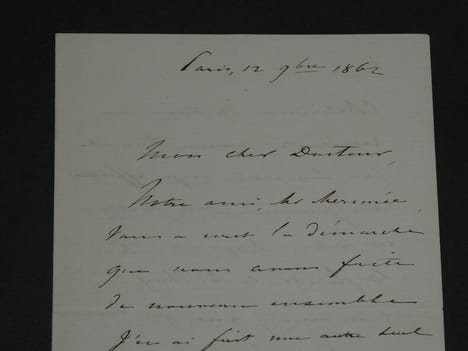 Paris, 12 9bre 1862
Mon cher Docteur
Notre ami, Mr
vous a écrit la démarche
que nous avons faite
de nouveau ensemble
J'en ai fait une autre seul